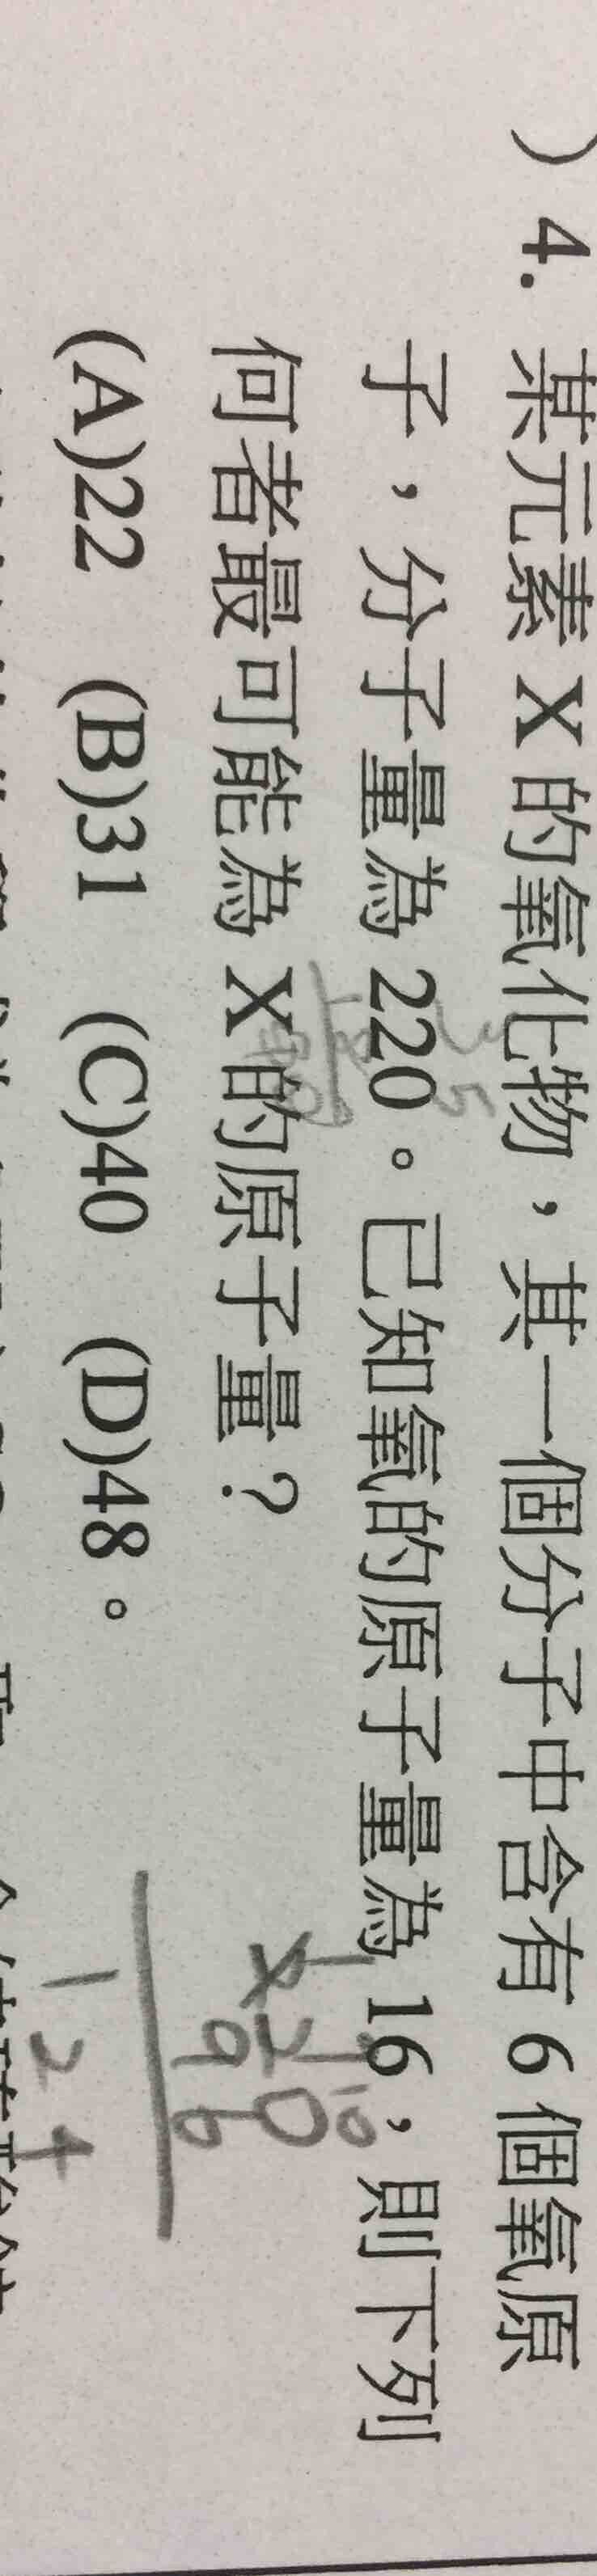 ) 4. 某元素 X 的氧化物,其一個分子中含有 6 個氧原
子,分子量為 220。已知氧的原子量為 16,則下列
何者最可能為 X 的原子量?
(A)22 (B)31 (C)40 (D)48。
220
96
124